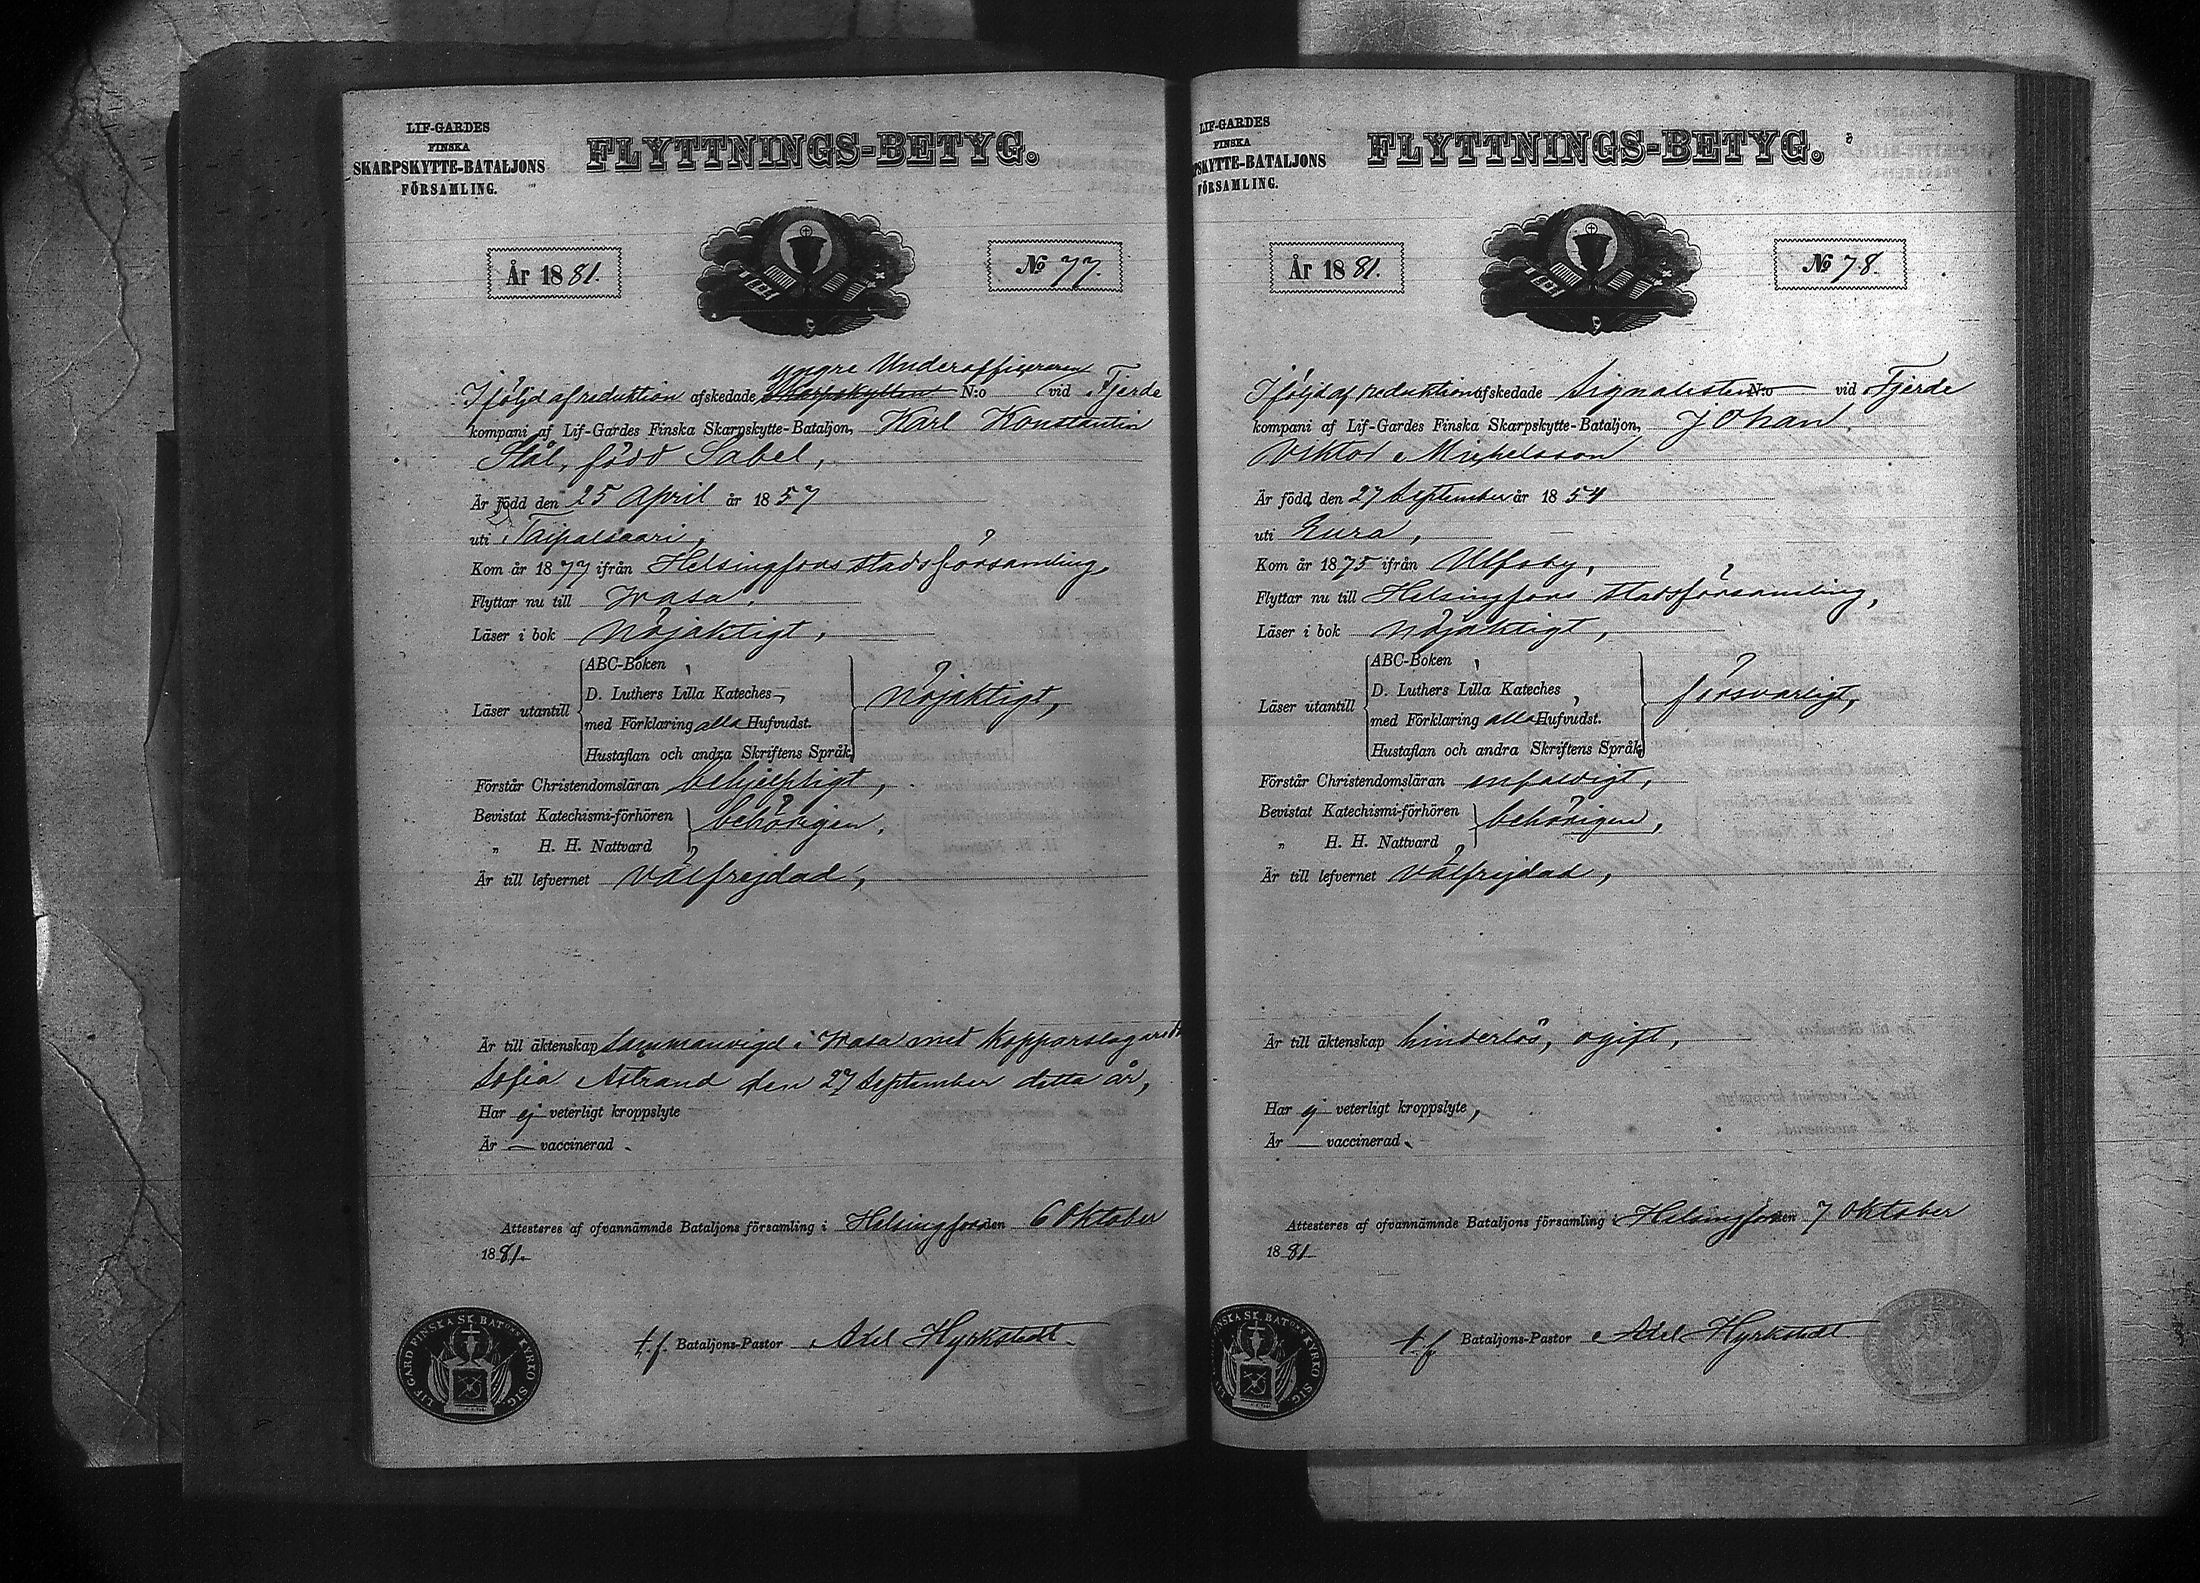 LIF-GARDES
FINSKA
SKARPSKYTTE-BATALJONS
FÖRSAMLING.
FLYTTNINGS-BETYG.
År 1881.
№ 77.
yngre Underofficeraren
I följd af reduktion afskedade Skarpskytten N:o vid Fjerde
kompani af Lif-Gardes Finska Skarpskytte-Bataljon, Karl Konstantin
Stål, född Sabel,
Är född den 25 April år 1857
uti Taipalsaari,
Kom år 1877 ifrån Helsingfors stadsförsamling,
Flyttar nu till Wasa,
Läser i bok Nöjaktigt,
ABC-Boken,
D. Luthers Lilla Kateches,
Läser utantill
med Förklaring alla Hufvudst.
Nöjaktigt,
Hustaflan och andra Skriftens Språk,
Förstår Christendomsläran behjelpligt,
Bevistat Katechismi-förhören
behörigen,
„ H. H. Nattvard
Är till lefvernet Välfrejdad,
Är till äktenskap Sammanvigd i Wasa med Kopparslagare
Sofia Åstrand den 27 September detta år,
Har ej veterligt kroppslyte
Är — vaccinerad.
Attesteres af ofvannämnde Bataljons församling i Helsingfors den 6 Oktober
1881.
t.f. Bataljons-Pastor Axel Hyrkstedt
LIF GARD FINSKA SK. BAT:ONS KYRKO SIG.
LIF-GARDES
FINSKA
PSKYTTE-BATALJONS
FÖRSAMLING.
FLYTTNINGS-BETYG.
År 1881.
№ 78.
I följd af reduktion afskedade Signalisten N:o vid Fjerde
kompani af Lif-Gardes Finska Skarpskytte-Bataljon, Johan
Viktor Michelsson
Är född den 27 September år 1854
uti Eura,
Kom år 1875 ifrån Ulfsby,
Flyttar nu till Helsingfors stadsförsamling,
Läser i bok Nöjaktigt,
ABC-Boken,
D. Luthers Lilla Kateches,
Läser utantill
med Förklaring alla Hufvudst.
försvarligt,
Hustaflan och andra Skriftens Språk,
Förstår Christendomsläran enfaldigt,
Bevistat Katechismi-förhören
behörigen,
„ H. H. Nattvard
Är till lefvernet Välfrejdad,
Är till äktenskap hinderlös, ogift,
Har ej veterligt kroppslyte,
Är — vaccinerad.
Attesteres af ofvannämnde Bataljons församling i Helsingfors den 7 Oktober
1881
t.f Bataljons-Pastor Axel Hyrkstedt
FINSKA SK. BAT:ONS KYRKO SIG.